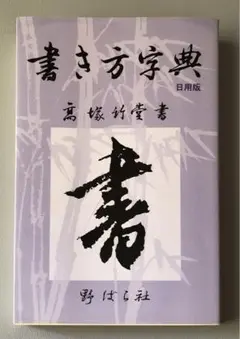 書き方字典
日用版
高塚竹堂書
書
野ばら社